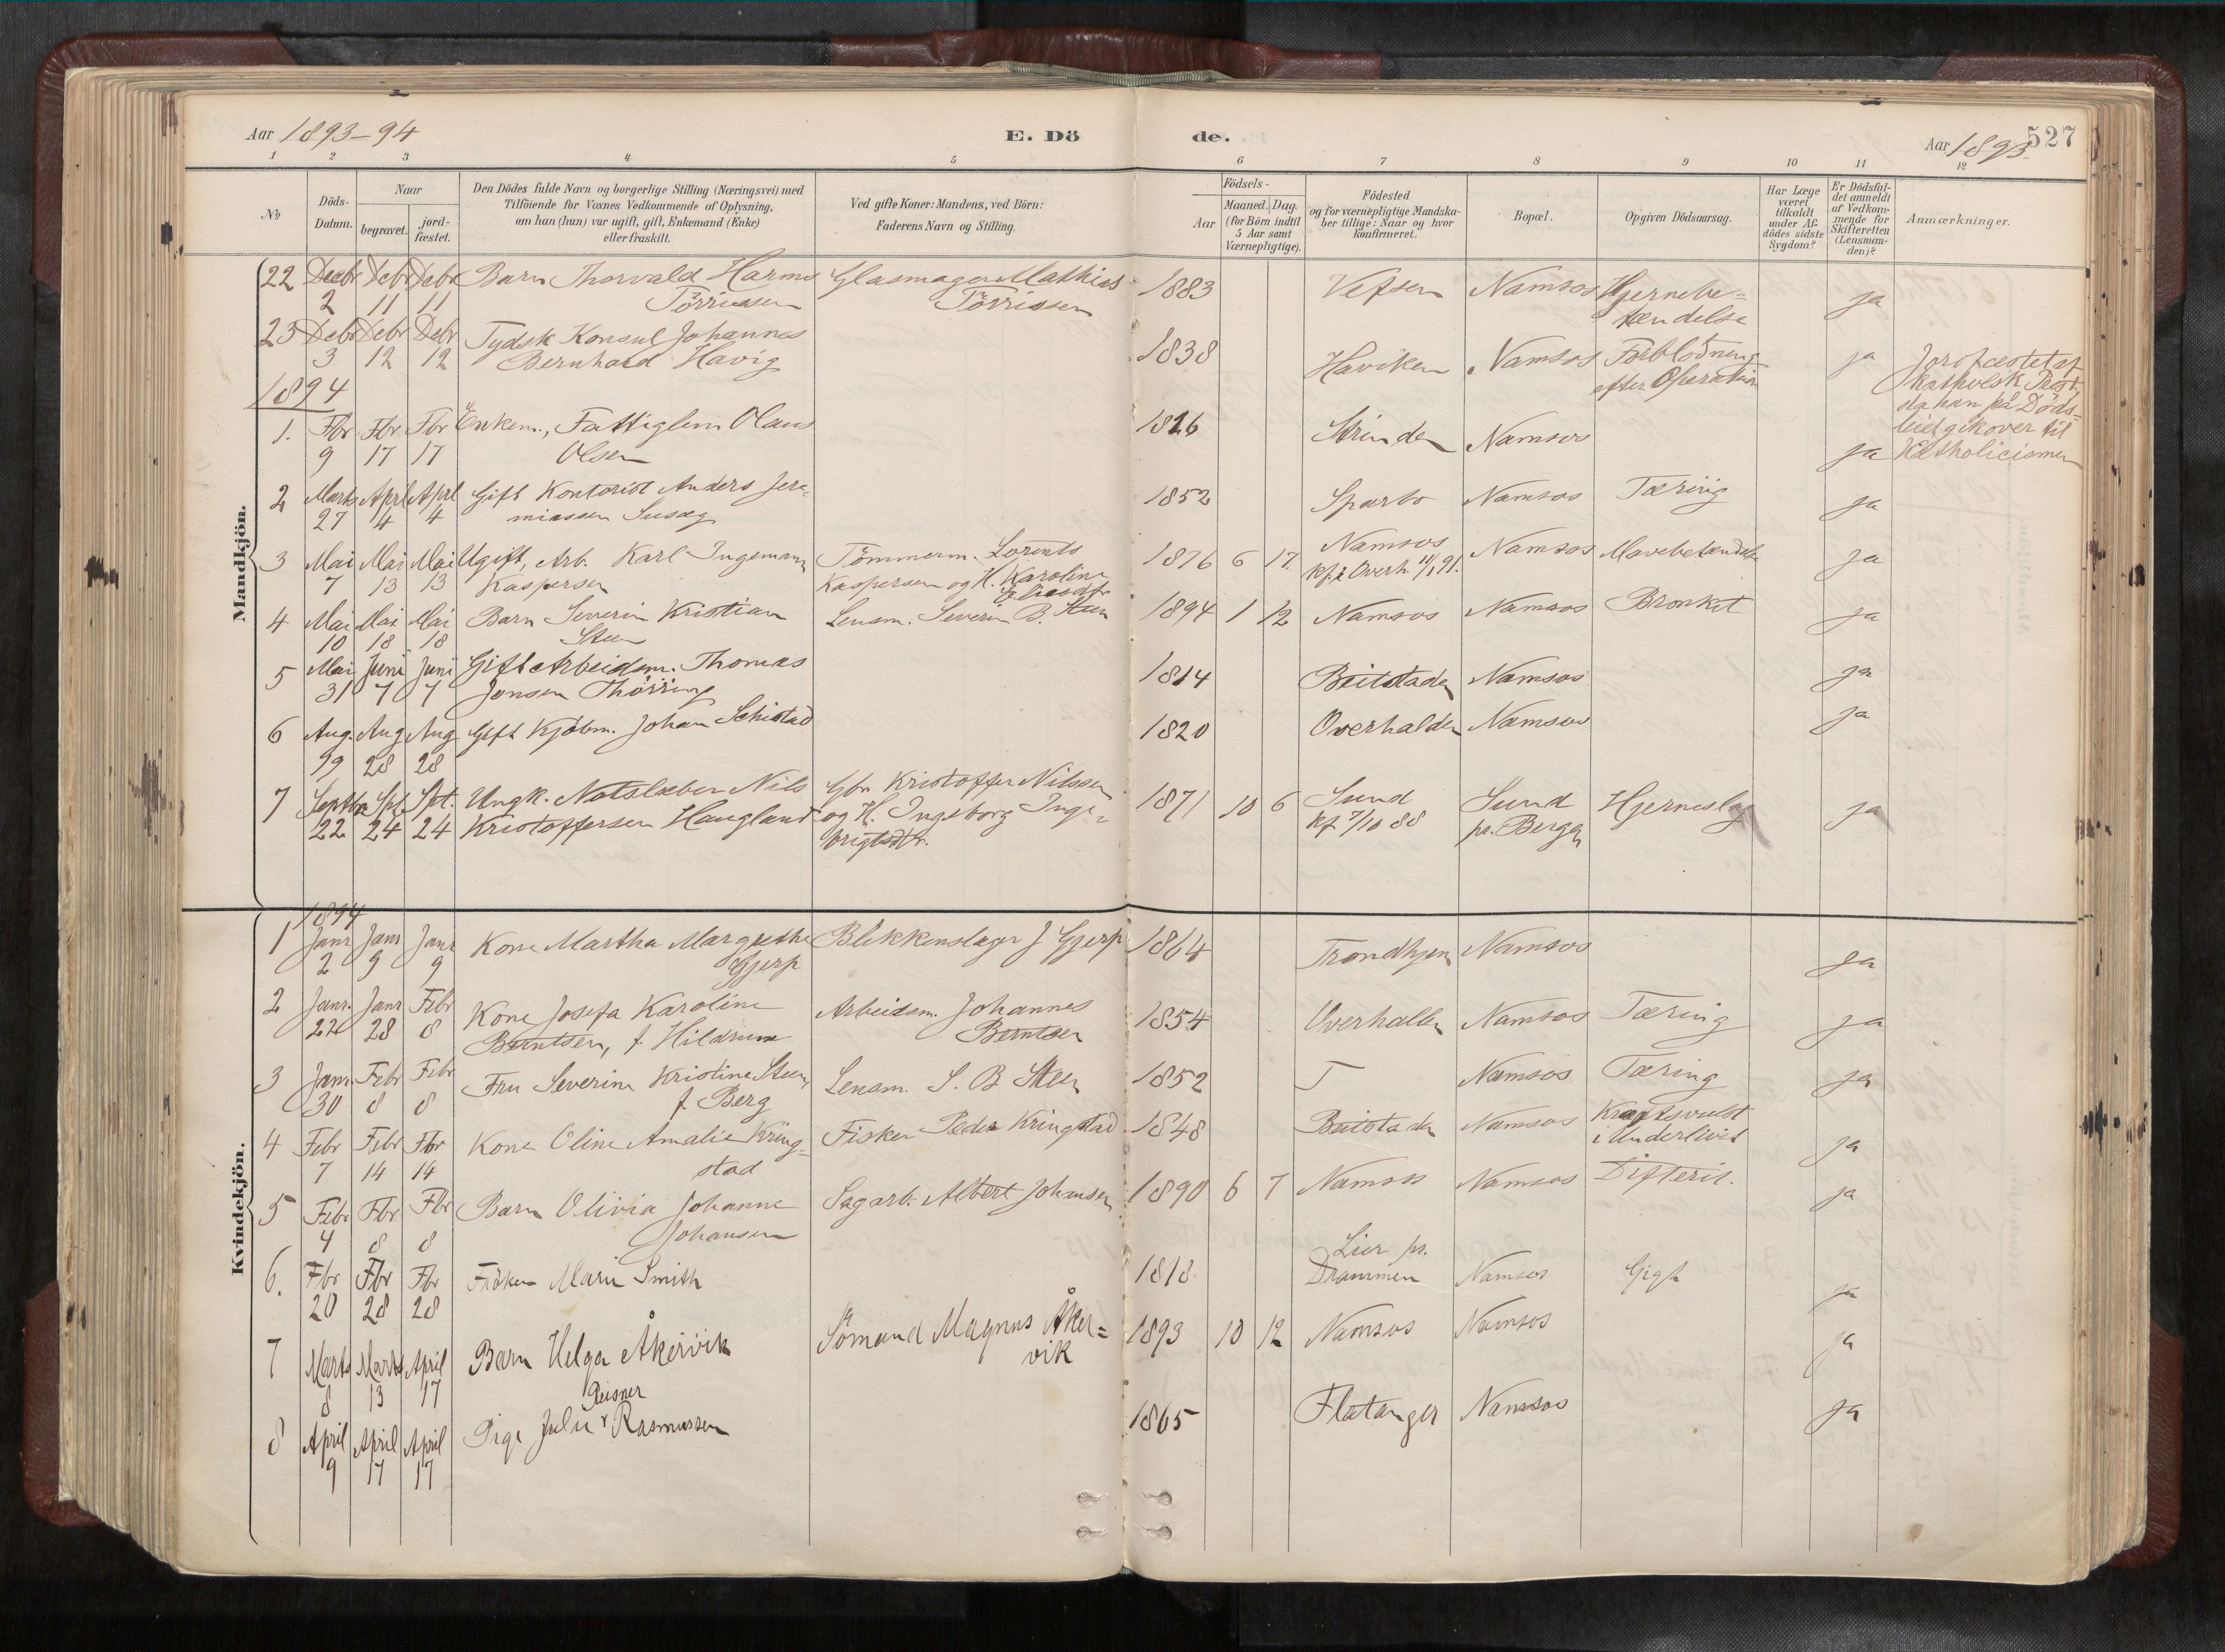 Aar 1893-94
E. Dö
de.
Aar 1893
527
1 2 3 4 5 6 7 8 9 10 11 12
№
Döds-
Datum.
Naar
begravet.
jord-
fæstet.
Den Dödes fulde Navn og borgerlige Stilling (Næringsvei) med
Tilföiende for Voxnes Vedkommende af Oplysning,
om han (hun) var ugift, gift, Enkemand (Enke)
eller fraskilt.
Ved gifte Koner: Mandens, ved Börn:
Faderens Navn og Stilling.
Födsels-
Aar
Maaned. Dag.
(for Börn indtil
5 Aar samt
Værnepligtige).
Födested
og for værnepligtige Mandska-
ber tillige: Naar og hvor
konfirmeret.
Bopæl.
Opgiven Dödsaarsag.
Har Læge
været
tilkaldt
under Af-
dödes sidste
Sygdom?
Er Dödsfal-
det anmeldt
af Vedkom-
mende for
Skifteretten
(Lensman-
den)?
Anmærkninger.
Mandkjön.
22 Decbr Debr Debr Barn Thorvald Harms Glasmager Mathias 1883 Vefsen Namsos Hjernebe=
2 11 11 Törrissen Törrissen tændelse ja
23 Debr Debr Debr Tydsk Konsul Johannes 1838 Haviken Namsos Forblödning ja Jordfæstet af
3 12 12 Bernhard Havig efter Operation katholsk Præst,
1894 da han på Döds-
1. Fbr Fbr Fbr Enkem., Fattiglem Olaus 1826 Strinden Namsos leiet gik over til
9 17 17 Olsen ja Katholicismen
2 Marts Aprl Aprl Gift Kontorist Anders Jere= 1852 Sparbo Namsos Tæring ja
27 4 4 miassen Susæg
3 Mai Mai Mai Ugift, Arb. Karl Ingemann Tömmerm. Lorents 1876 6 17. Namsos Namsos Mavebetændelse ja
7 13 13 Kaspersen Kaspersen og H. Karoline kf. i Overh. 11/1 91.
Eliasdtr
4 Mai Mai Mai Barn Severin Kristian Lensm. Severin B. Steen 1894 1 12 Namsos Namsos Bronkit ja
10 18 18 Steen
5 Mai Juni Juni Gift Arbeidsm. Thomas 1814 Beitstaden Namsos ja
31 7 7 Jonsen Thörring
6 Aug. Aug Aug Gift Kjöbm. Johan Schistad 1820 Overhalden Namsos ja
19 28 28
7 Septbr Spt. Spt. Ungk. Notslæber Nils Gbr. Kristoffer Nilssen 1871 10 6 Sund Sund Hjerneslag ja
22 24 24 Kristoffersen Haugland og H. Ingeborg Inge= kf 7/10 88 pr. Bergen
brigtsdtr.
Kvindekjön.
1894
1 Janr Janr Janr Kone Martha Margrethe Blikkenslager J Gjerp 1864 Trondhjem Namsos ja
2 9 9 Gjerp
2 Janr. Janr Febr Kone Josefa Karoline Arbeidsm. Johannes 1854 Overhallen Namsos Tæring ja
22 28 8 Berntsen, f. Hildrum Berntsen
3 Janr Febr Febr Fru Severine Kristine Steen, Lensm. S. B Steen 1852 T Namsos Tæring ja
30 8 8 f. Berg
4 Febr Febr Fbr Kone Oline Amalie Kring= Fisker Peder Kringstad 1848 Beitstaden Namsos Kræftsvulst
7 14 14 stad i Underlivet ja
5 Febr Fbr Fbr Barn Olivia Johanne Sagarb. Albert Johansen 1890 6 7 Namsos Namsos Difterit. ja
4 8 8 Johansen
6. Fbr Fbr Fbr Fröken Marie Smith 1818. Lier pr.
20 28 28 Drammen Namsos Gigt ja
7 Marts Marts April Barn Helga Åkervik Sömand Magnus Åker= 1893 10 12 Namsos Namsos ja
8 13 17 vik
Reisner
8 April April April Pige Julie ᵛ Rasmussen 1865 Flatanger Namsos ja
9 17 17